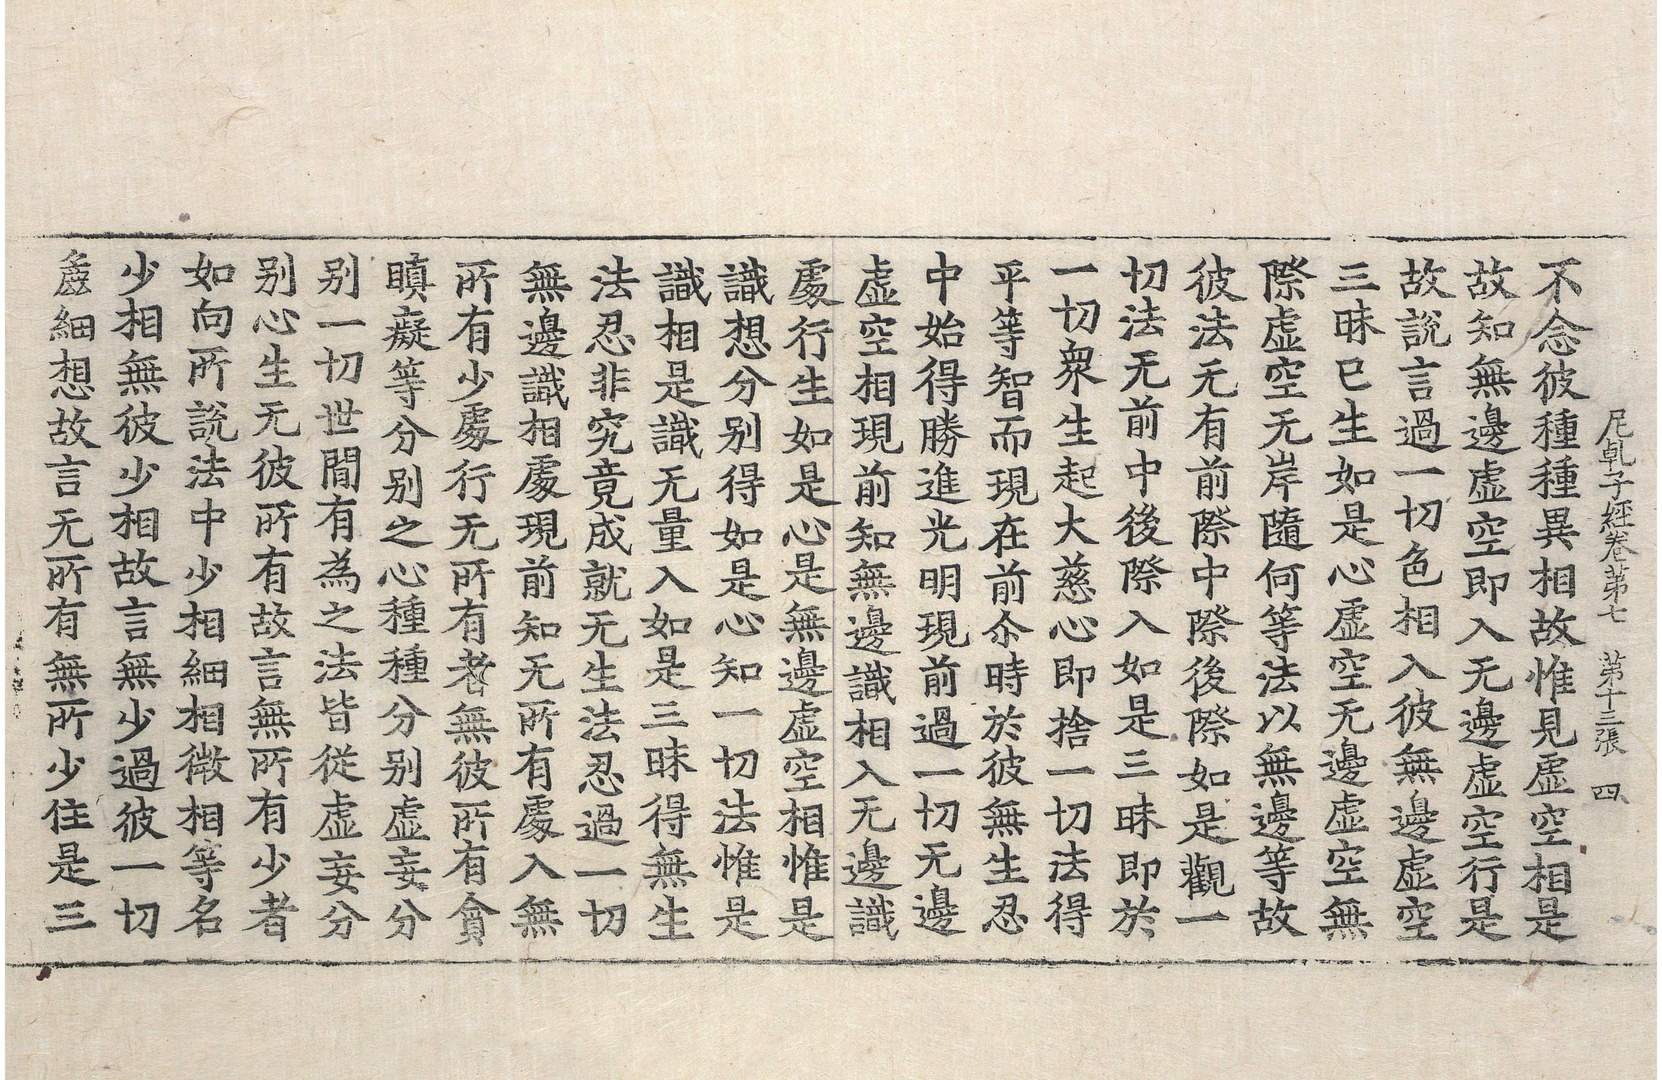 尼乹子經卷第七　第十三張　四
不念彼種種異相故惟見虛空相是
故知無邊虛空即入无邊虛空行是
故說言過一切色相入彼無邊虛空
三昧已生如是心虛空无邊虛空無
際虛空无岸隨何等法以無邊等故
彼法无有前際中際後際如是觀一
切法无前中後際入如是三昧即於
一切衆生起大慈心即捨一切法得
平等智而現在前尒時於彼無生忍
中始得勝進光明現前過一切无邊
虛空相現前知無邊識相入无邊識
處行生如是心是無邊虛空相惟是
識想分別得如是心知一切法惟是
識相是識无量入如是三昧得無生
法忍非究竟成就无生法忍過一切
無邊識相處現前知无所有處入無
所有少處行无所有者無彼所有貪
瞋癡等分别之心種種分别虛妄分
别一切世間有為之法皆從虛妄分
别心生无彼所有故言無所有少者
如向所說法中少相細相微相等名
少相無彼少相故言無少過彼一切
麁細想故言无所有無所少住是三